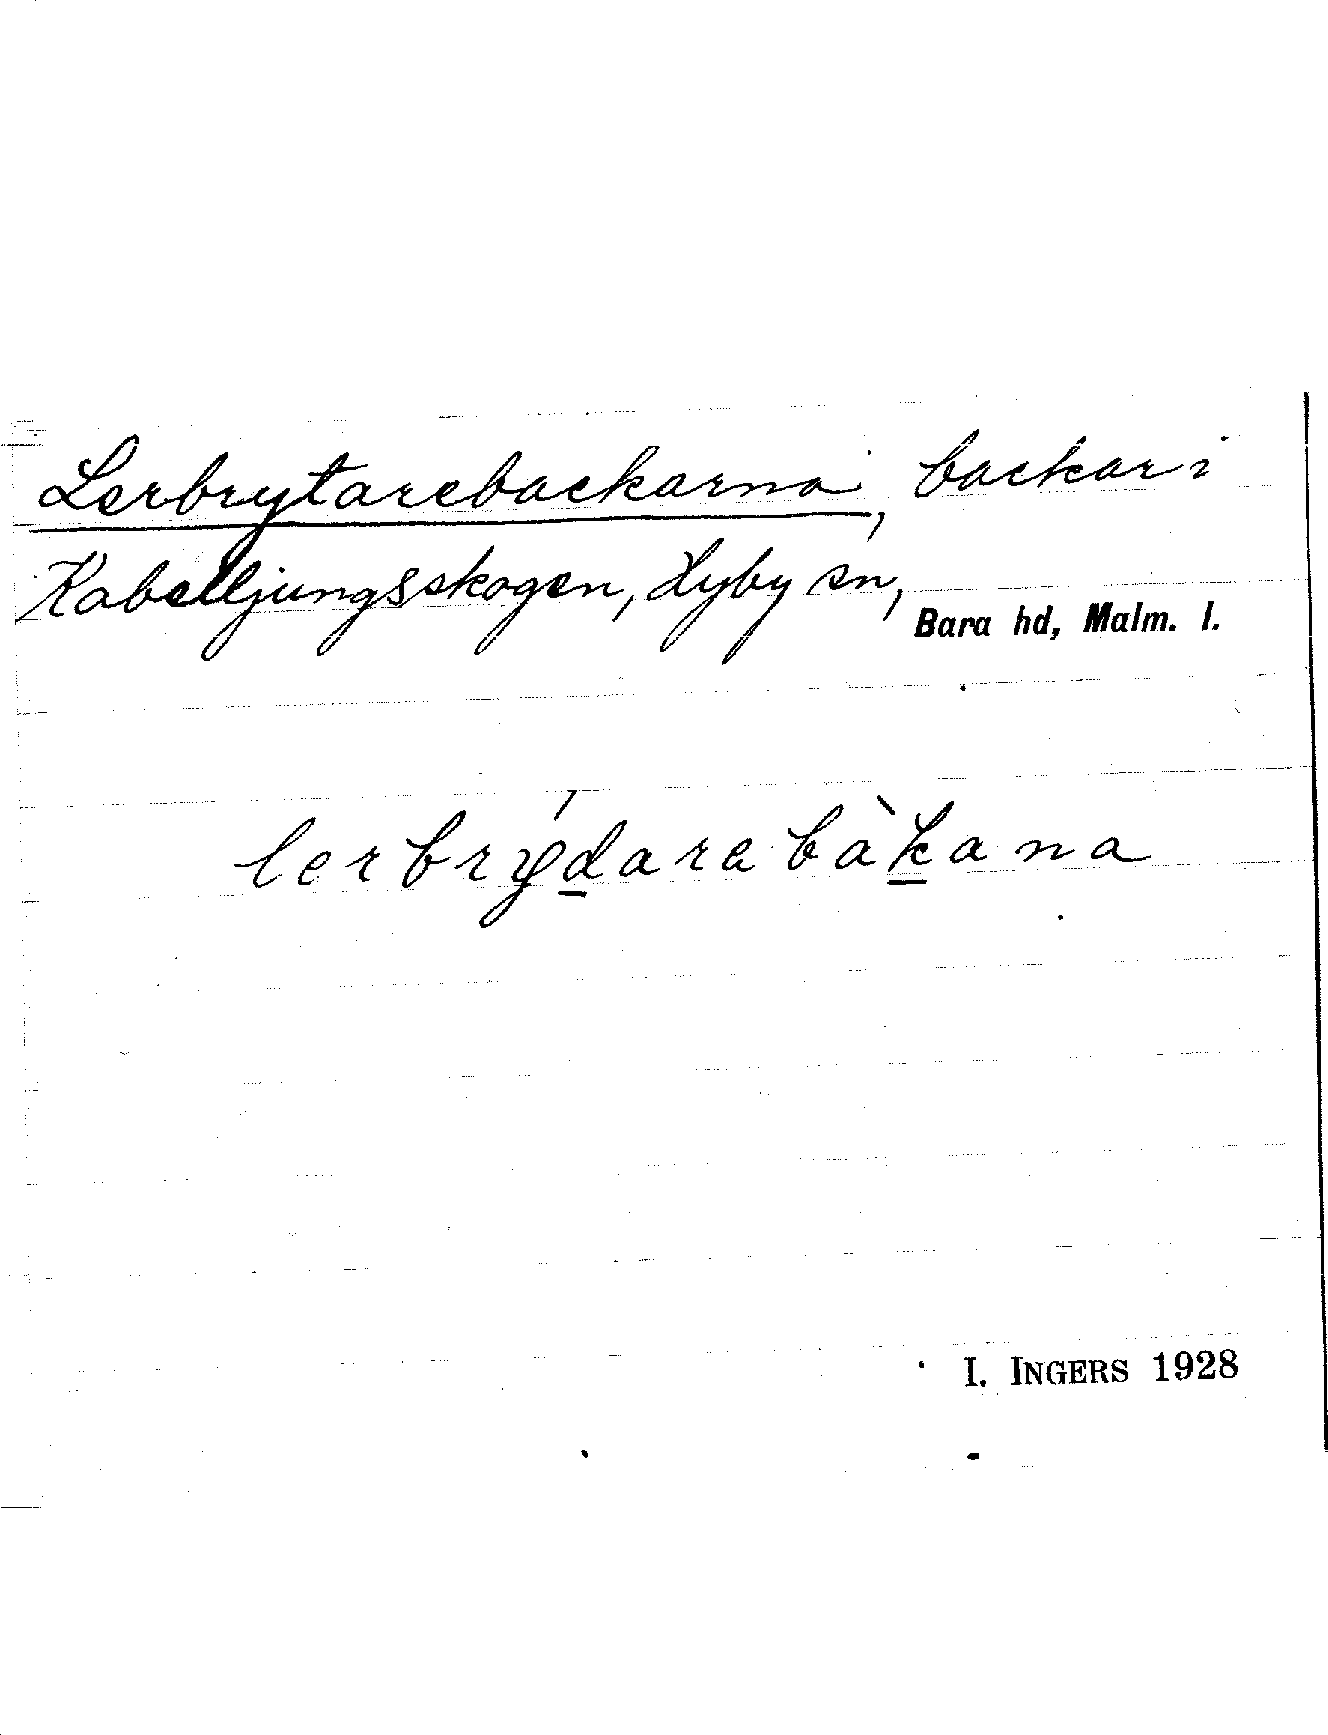 Lerbrytarebackarna, backar i
Kabelljungsskogen, Lyby sn,
Bara hd, Malm. l.
lerbrýdarebàkana
I. INGERS 1928